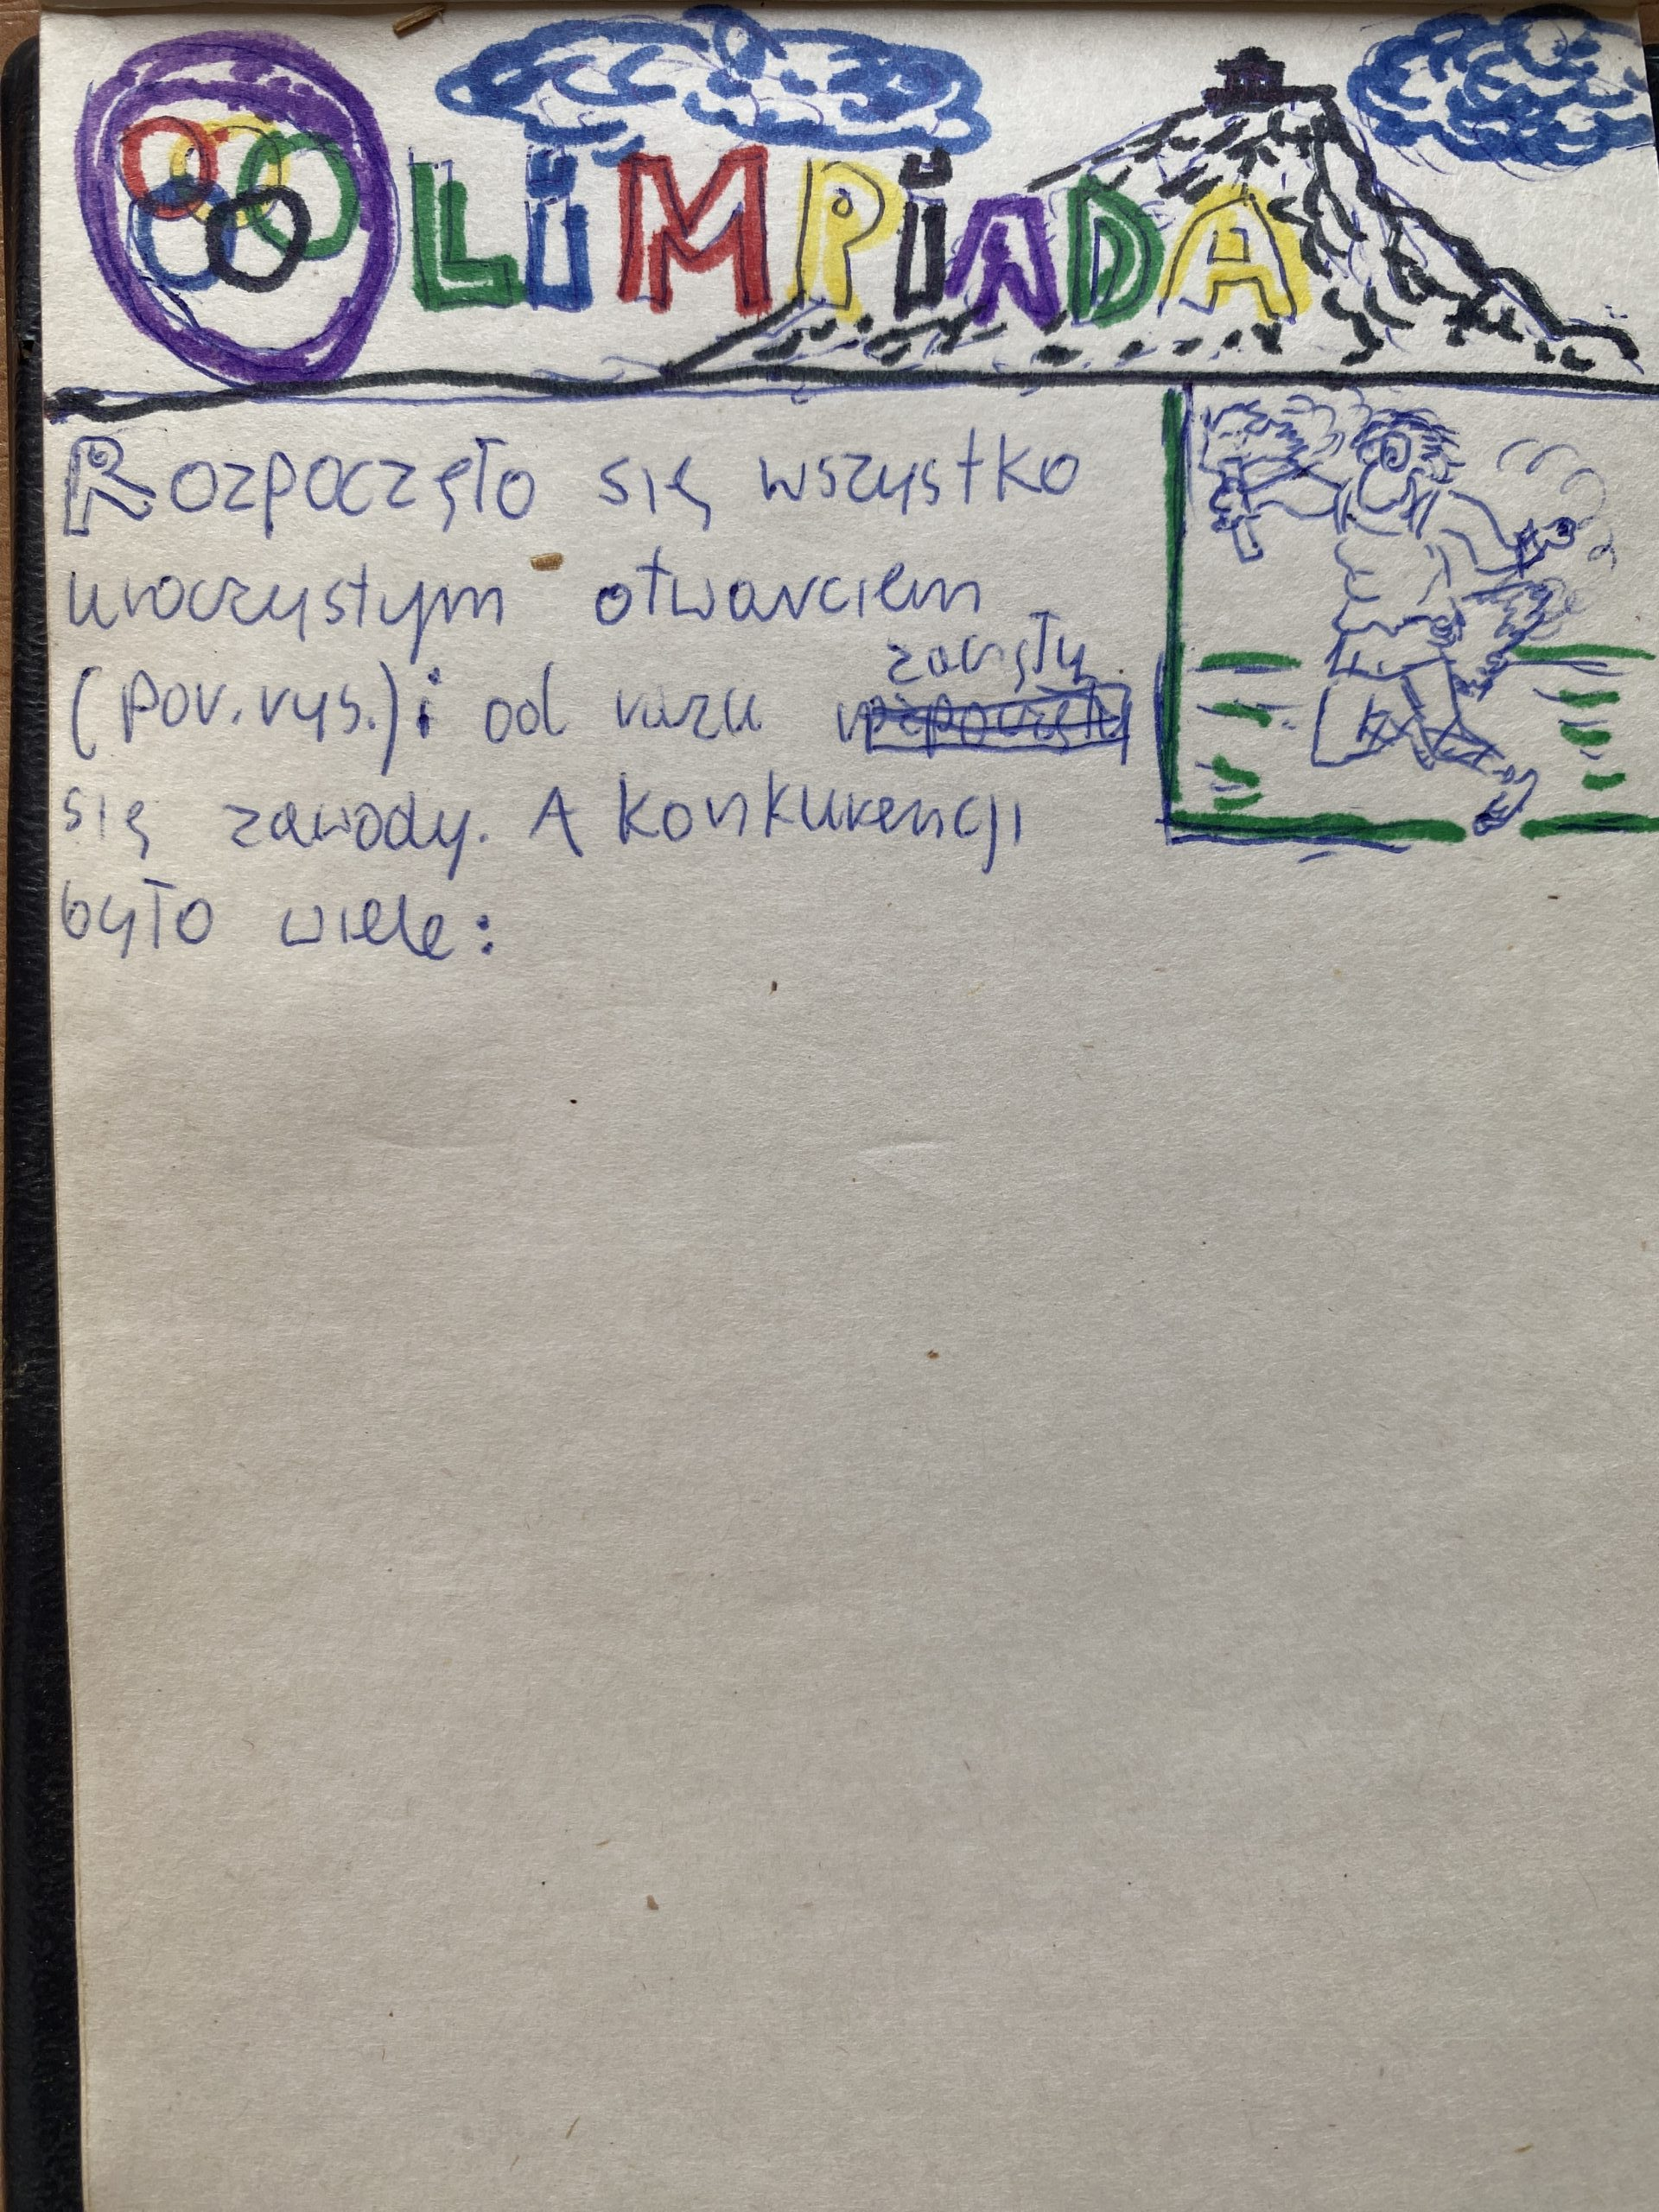 OLIMPIADA
Rozpoczęło się wszystko
uroczystym otwarciem
(por. rys.) i od razu zaczęły
się zawody. A konkurencji
było wiele: